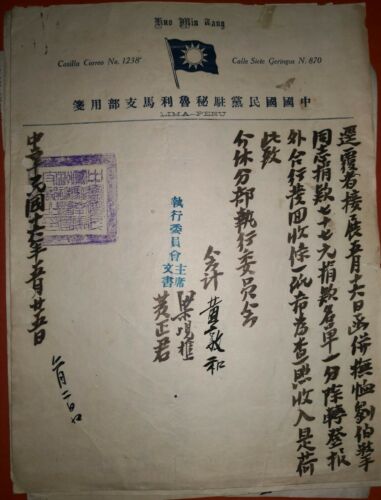 Kuo Min Tang
Casilla Correo No. 1238
Calle Siete Geringas N. 870
中國國民黨駐秘魯利馬支部用箋
LIMA-PERU
逕覆者接展五月十六日函併撫恤劉伯擎
同志捐款七十七元捐款名單一分除轉登報
外合行發回收條一紙希為查照收入是荷
此致
分部執行委員會
會計 黃敦和
執行委員會主席
文書 黃正君
中華民國十六年五月廿五日
六月二日